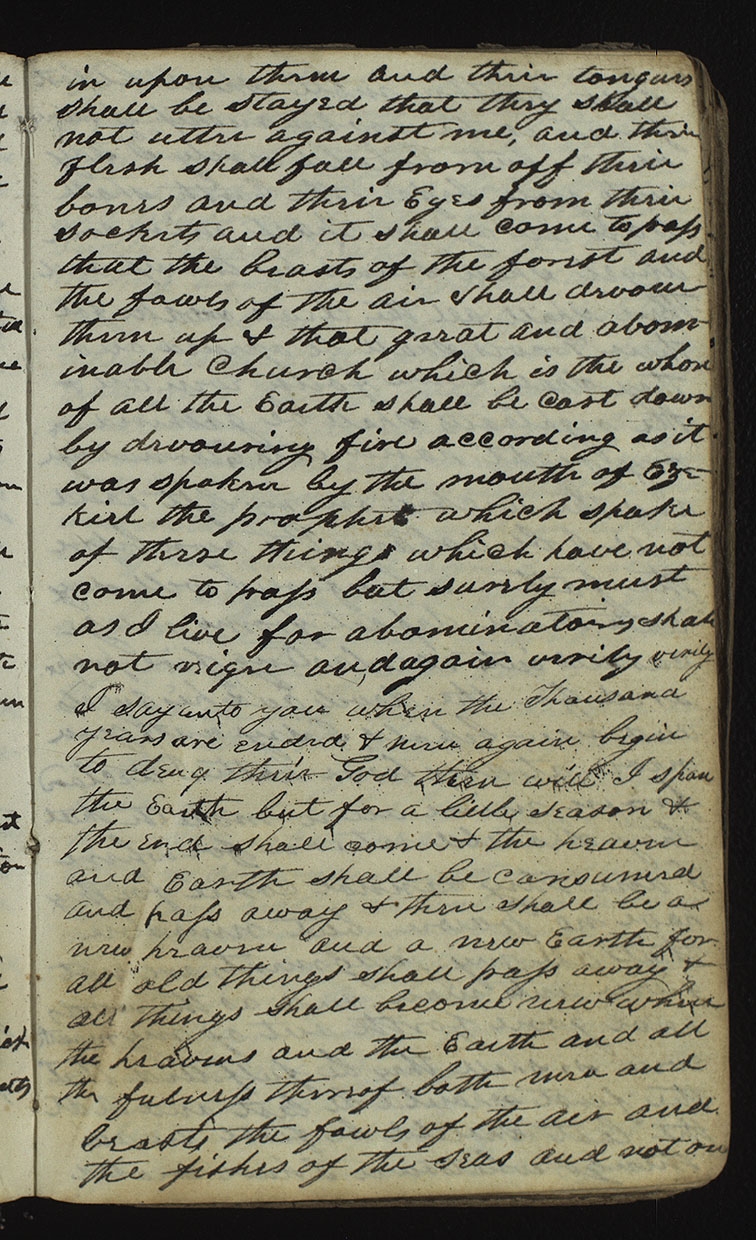 in upon them and their tongues
shall be stayed that they shall
not utter against me, and their
flesh shall fall from off their
bones and their Eyes from their
sockets and it shall come to pass
that the beasts of the forest and
the fowls of the air shall devour
them up & that great and abom-
inable Church which is the whore
of all the Earth shall be cast down
by devouring fire according as it
was spoken by the mouth of Eze-
kiel the prophet which spoke
of these things which have not
come to pass but surely must
as I live for abominations shall
not reign and again verily verily
I say unto you when the Thousand
years are ended & men again begin
to deny their God then will I spare
the Earth but for a little season &
the end shall come & the heaven
and Earth shall be consumed
and pass away & there shall be a
new heaven and a new Earth for
all old things shall pass away &
all things shall become new when
the heavens and the Earth and all
the fulness thereof both men and
beasts the fowls of the air and
the fishes of the seas and not on